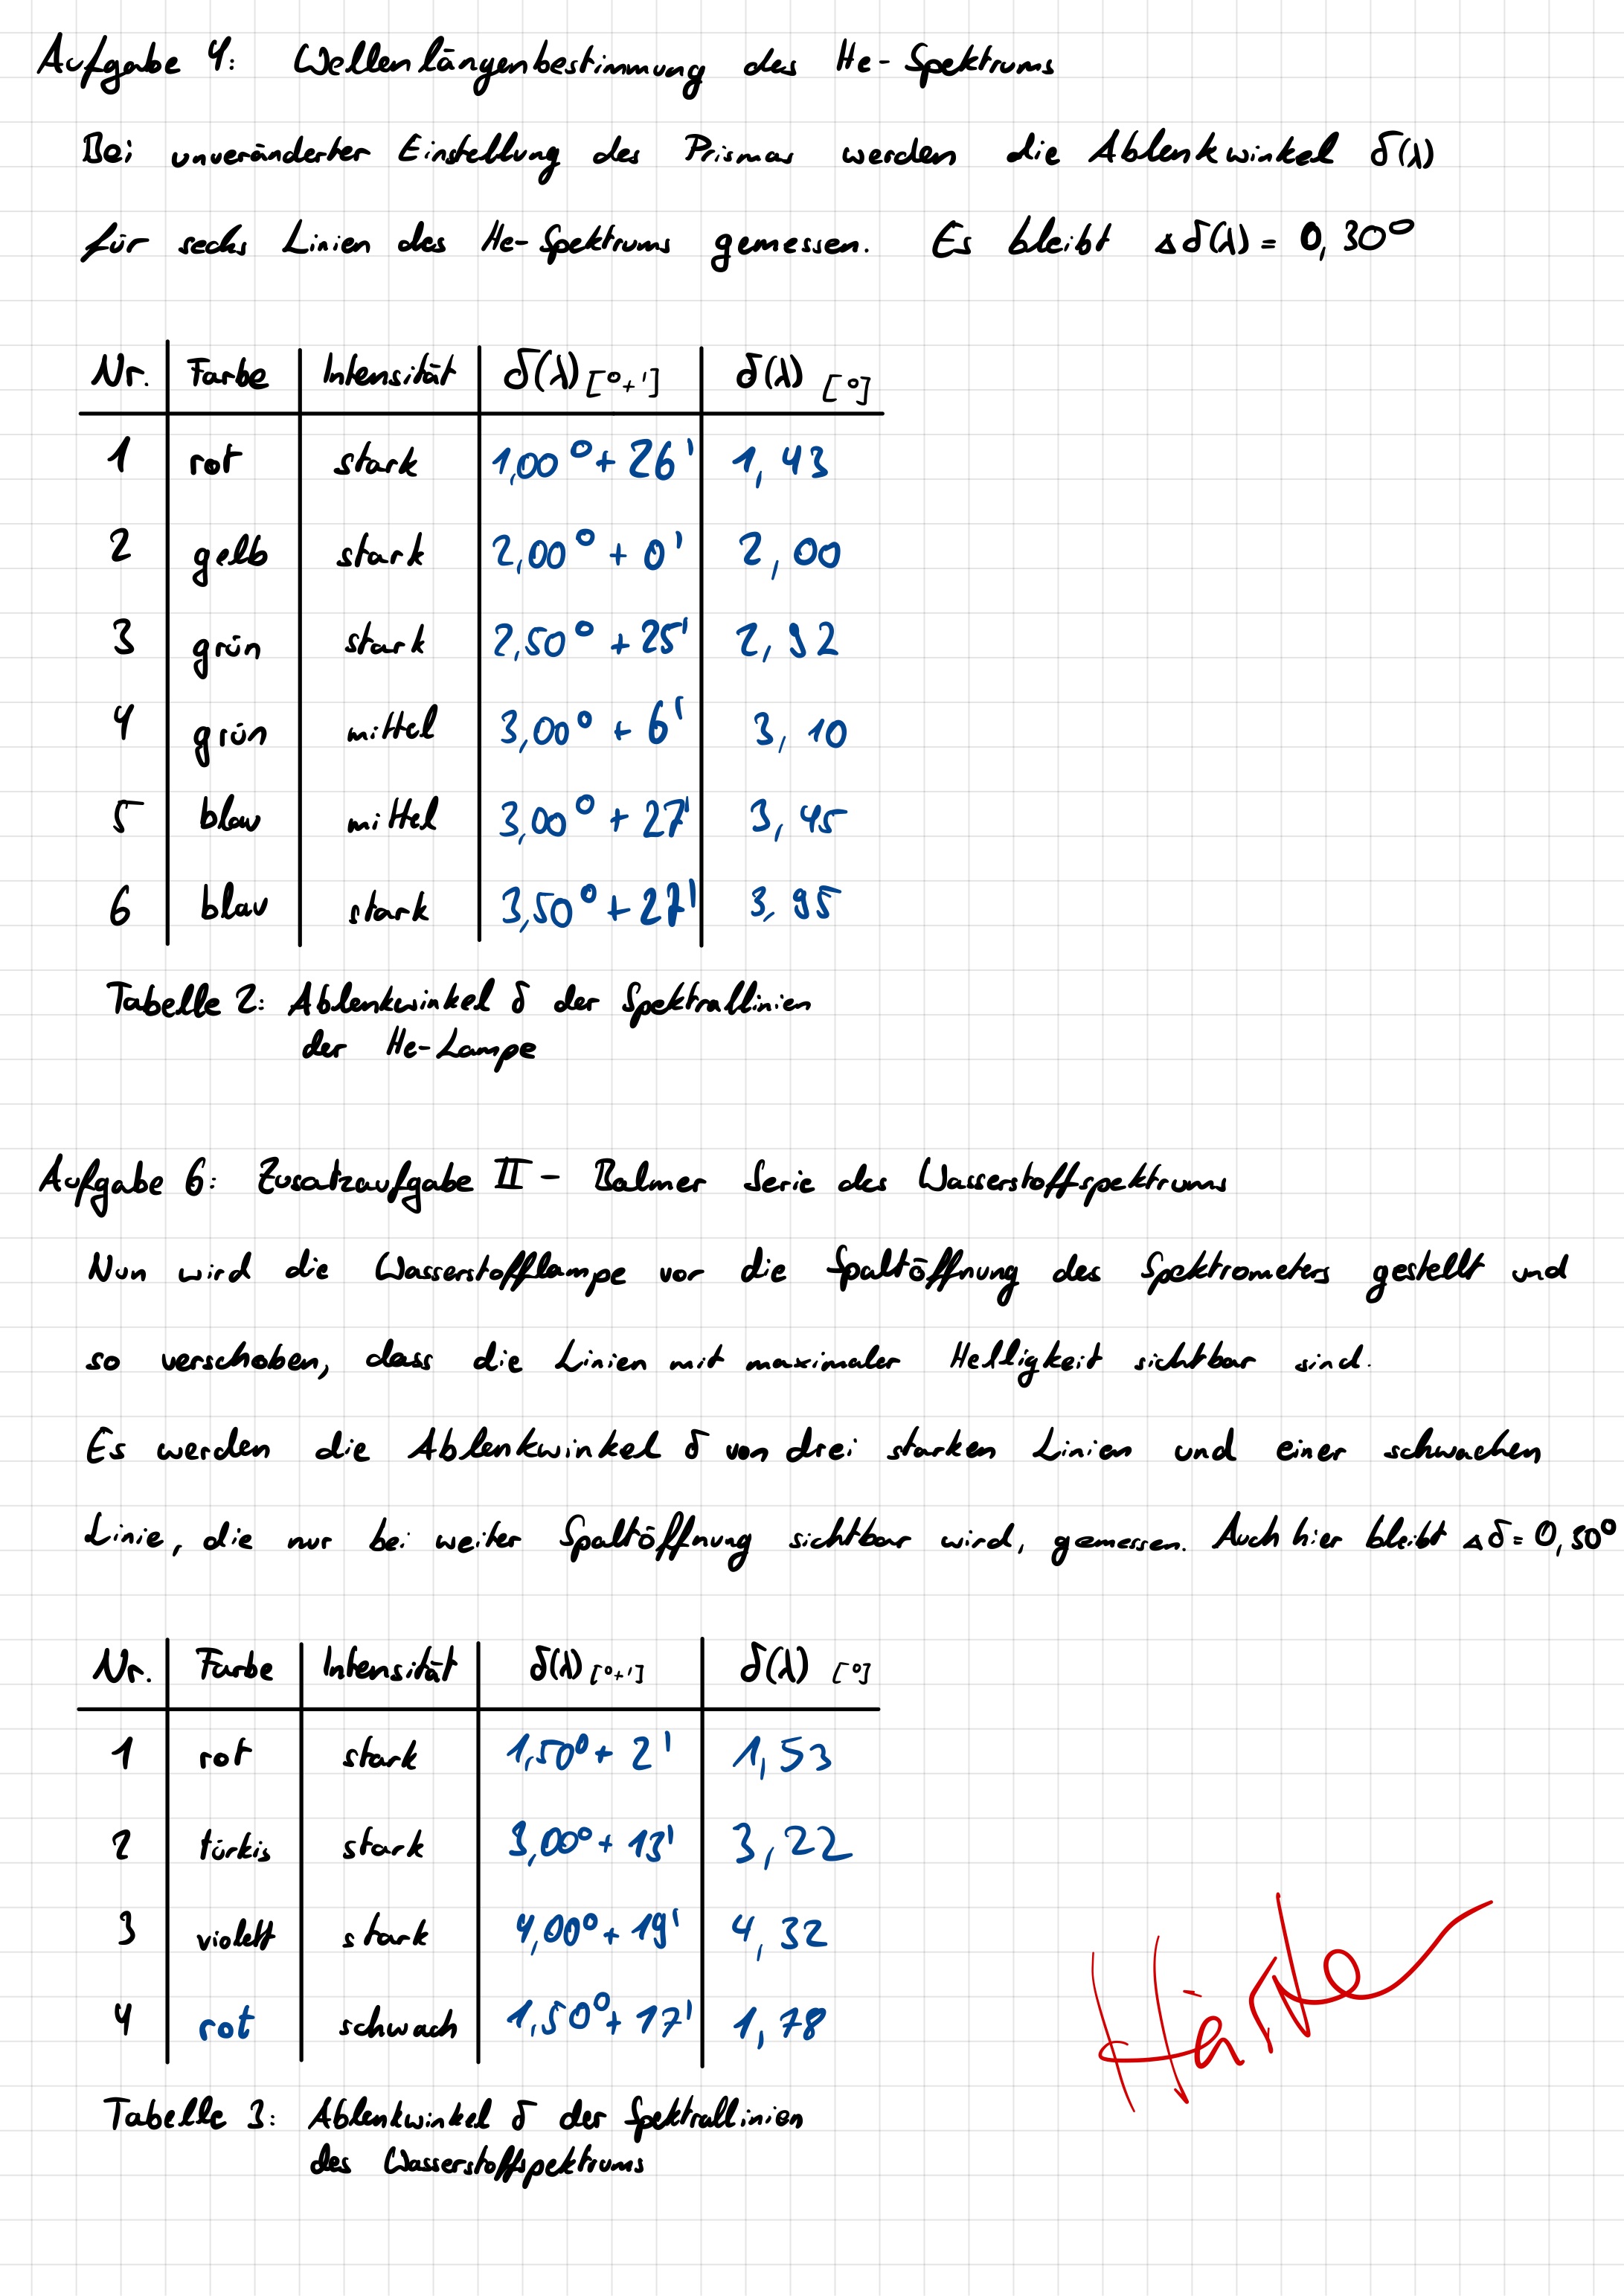 Aufgabe 4: Wellenlängenbestimmung des He-Spektrums
Bei unveränderter Einstellung des Prismas werden die Ablenkwinkel δ(λ)
für sechs Linien des He-Spektrums gemessen. Es bleibt Δδ(λ) = 0,30°
Nr. Farbe Intensität δ(λ) [°+'] δ(λ) [°]
1 rot stark 1,00° + 26' 1,43
2 gelb stark 2,00° + 0' 2,00
3 grün stark 2,50° + 25' 2,92
4 grün mittel 3,00° + 6' 3,10
5 blau mittel 3,00° + 27' 3,45
6 blau stark 3,50° + 27' 3,95
Tabelle 2: Ablenkwinkel δ der Spektrallinien
der He-Lampe
Aufgabe 6: Zusatzaufgabe II - Balmer Serie des Wasserstoffspektrums
Nun wird die Wasserstofflampe vor die Spaltöffnung des Spektrometers gestellt und
so verschoben, dass die Linien mit maximaler Helligkeit sichtbar sind.
Es werden die Ablenkwinkel δ von drei starken Linien und einer schwachen
Linie, die nur bei weiter Spaltöffnung sichtbar wird, gemessen. Auch hier bleibt Δδ = 0,30°
Nr. Farbe Intensität δ(λ) [°+'] δ(λ) [°]
1 rot stark 1,50° + 2' 1,53
2 türkis stark 3,00° + 13' 3,22
3 violett stark 4,00° + 19' 4,32
4 rot schwach 1,50° + 17' 1,78
Tabelle 3: Ablenkwinkel δ der Spektrallinien
des Wasserstoffspektrums